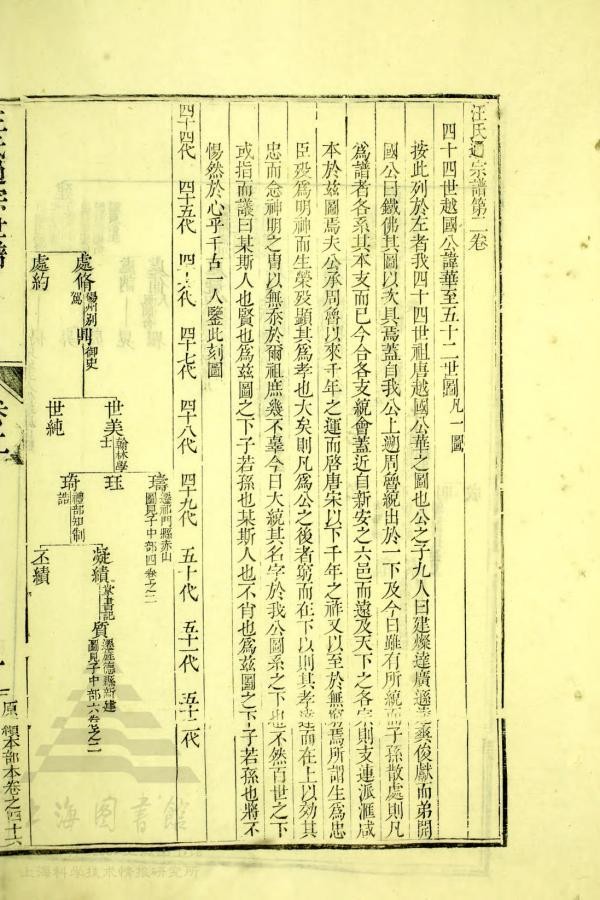 汪氏通宗譜第二卷
四十四世越國公諱華至五十二世圖凡一圖
按此列於左者我四十四世祖唐越國公華之圖也公之子九人曰建燦達廣遜爽俊獻而弟開
國公曰鐵佛其圖以次具焉蓋自我公上遡周魯統出於一下及今日雖有所統而子孫散處則凡
爲譜者各系其本支而已今合各支統會蓋近自新安之六邑而遠及天下之各宗則支連派滙咸
本於玆圖焉夫公承周魯以來千年之運而啓唐宋以下千年之祚又以至於無窮焉所謂生爲忠
臣歿爲明神而生榮歿顯其爲孝也大矣則凡爲公之後者窮而在下以則其孝達而在上以効其
忠而念神明之冑以無忝於爾祖庶幾不辜今日大統其名字於我公圖系之下也不然百世之下
或指而議曰某斯人也賢也爲玆圖之下子若孫也某斯人也不肖也爲玆圖之下子若孫也將不
惕然於心乎千古一人鑒此刻圖
四十四代 四十五代 四十六代 四十七代 四十八代 四十九代 五十代 五十一代 五十二代
璹 遷祁門縣赤山
圖見子中部四卷之二
處脩 楊州別駕
開 御史
世美 翰林學士
珏
凝績 掌書記
質 遷旌德縣新建
圖見子中部六卷之二
處約
世純
琦 禮部知制誥
丕績
汪氏通宗世譜
卷二
一
原縮本部本卷之四十六
上海圖書館
上海科学技术情报研究所